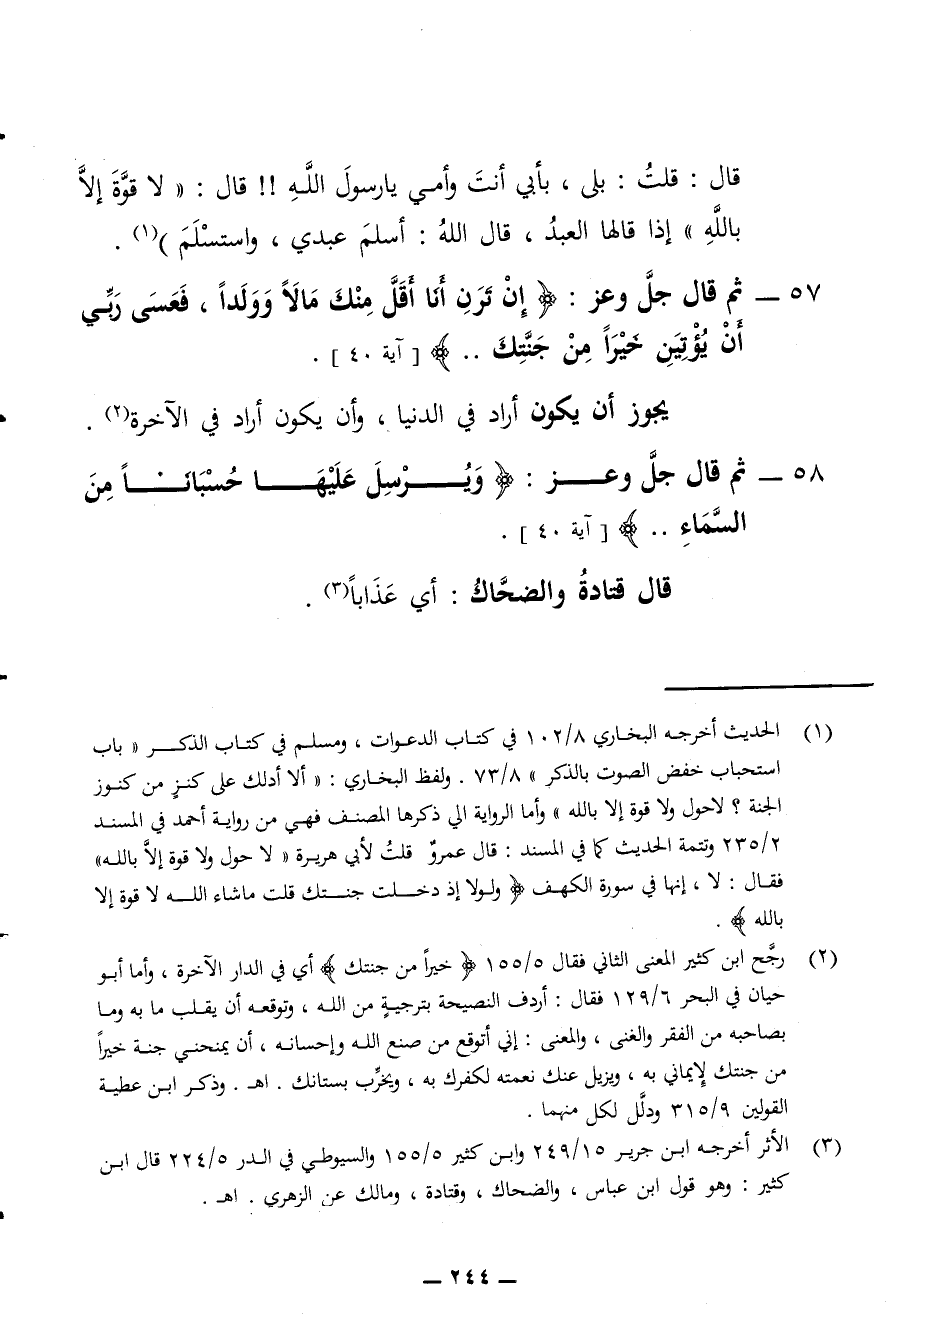 قال : قلتُ : بلى ، بأبي أنتَ وأمي يارسولَ اللَّهِ !! قال : « لا قوَّةَ إلاَّ
باللَّهِ » إذا قالها العبدُ ، قال اللهُ : أسلمَ عبدي ، واستسْلَمَ )(١) .
٥٧ ــ ثم قال جلَّ وعز : ﴿ إِنْ تَرَنِ أَنَا أَقَلَّ مِنْكَ مَالاً وَوَلَداً ، فَعَسَى رَبِّي
أَنْ يُؤْتِيَنِ خَيْرَاً مِنْ جَنَّتِكَ .. ﴾ [ آية ٤٠ ] .
يجوز أن يكون أراد في الدنيا ، وأن يكون أراد في الآخرة(٢) .
٥٨ ــ ثم قال جلَّ وعـــز : ﴿ وَيُـــرْسِلَ عَلَيْهَـــا حُسْبَانَـــاً مِنَ
السَّمَاءِ .. ﴾ [ آية ٤٠ ] .
قال قتادةُ والضحَّاكُ : أي عَذَاباً(٣) .
(١) الحديث أخرجه البخاري ١٠٢/٨ في كتاب الدعوات ، ومسلم في كتاب الذكـــر « باب
استحباب خفض الصوت بالذكر » ٧٣/٨ . ولفظ البخاري : « ألا أدلك على كنزٍ من كنوز
الجنة ؟ لاحول ولا قوة إلا بالله » وأما الرواية الي ذكرها المصنف فهي من روايـة أحمد في المسند
٢٣٥/٢ وتتمة الحديث كما في المسند : قال عمروٌ قلتُ لأبي هريرة « لا حول ولا قوة إلاَّ بالله»
فقـال : لا ، إنها في سورة الكهـف ﴿ ولـولا إذ دخـلـت جنـتـك قلت ماشاء اللـه لا قوة إلا
بالله ﴾ .
(٢) رجَّح ابن كثير المعنى الثاني فقال ١٥٥/٥ ﴿ خيراً من جنتك ﴾ أي في الدار الآخرة ، وأما أبـو
حيان في البحر ١٢٩/٦ فقال : أردف النصيحة بترجيةٍ من الله ، وتوقعه أن يقـلب ما به ومـا
بصاحبه من الفقر والغنى ، والمعنى : إني أتوقع من صنع الله وإحسانـه ، أن يمنحنـي جنـة خيراً
من جنتك لِإيماني به ، ويزيل عنك نعمته لكفرك به ، ويخرِّب بستانك . اهـ . وذكـر ابـن عطيـة
القولين ٣١٥/٩ ودلَّل لكل منهما .
(٣) الأثر أخرجـه ابـن جريـر ٢٤٩/١٥ وابن كثير ١٥٥/٥ والسيوطي في الـدر ٢٢٤/٥ قال ابـن
كثير : وهو قول ابن عباس ، والضحاك ، وقتادة ، ومالك عن الزهري . اهـ .
ــ ٢٤٤ ــ